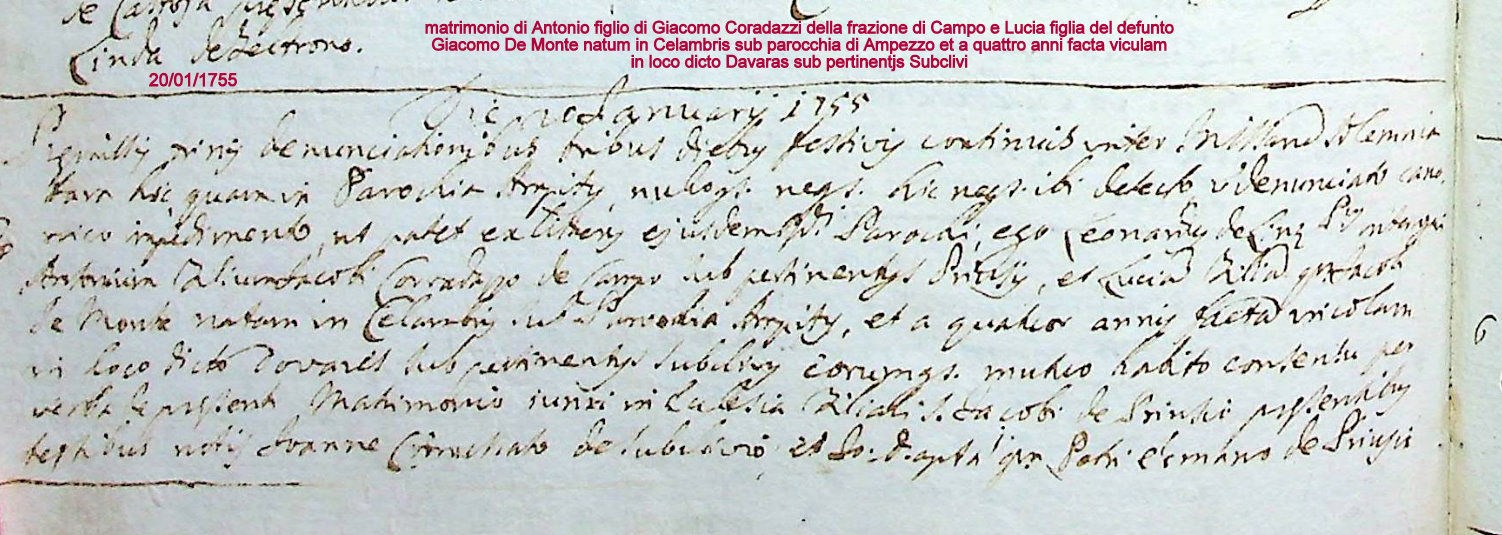 de
Linda de Zectrons.
matrimonio di Antonio figlio di Giacomo Coradazzi della frazione di Campo e Lucia figlia del defunto
Giacomo De Monte natum in Celambris sub parocchia di Ampezzo et a quattro anni facta viculam
in loco dicto Davaras sub pertinentjs Subclivi
20/01/1755
Die 20 Januarij 1755
Premissis trinis denunciationibus tribus diebus festivis continuis inter Missarum solemnia
tam hic quam in Parochia Ampitij, nulloq. neq. hic neq. ibi detecto, v. denunciato cano
nico impedimento, ut patet ex litteris ejusdem Parochi, ego Leonardus de
Antonium filium Jacobi Corradazzo de Campo sub pertinentijs Priusij, et Luciam filiam qm Jacobi
de Monte natam in Celambris sub Parochia Ampitij, et a quatuor annis factam vicolam
in loco dicto Dovares sub pertinentijs Subclivij eorumq. mutuo habito consensu per
verba de presenti Matrimonio iunxi in Eclesia filiali S. Jacobi de Priusio presentibus
testibus notis Joanne de Subclivio, et Jo: qm Petri de Priusio
6